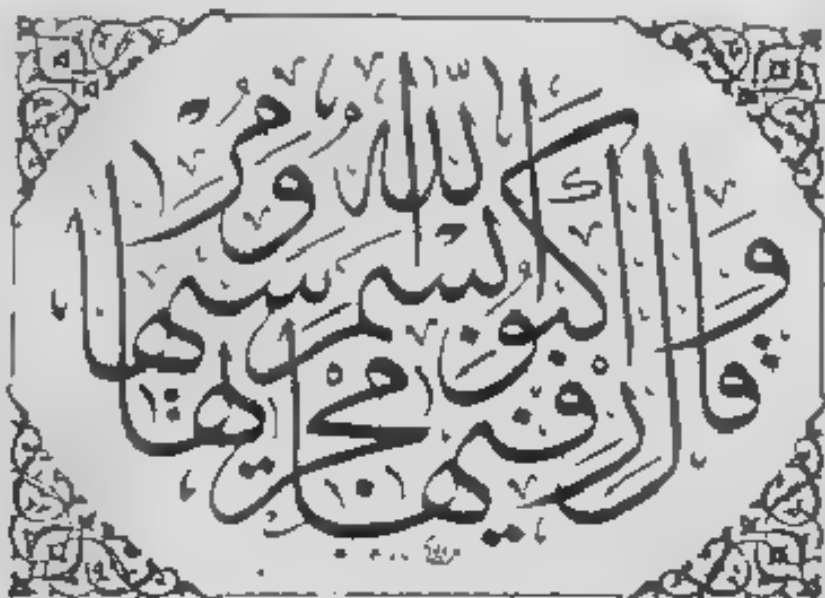 وقال اركبوا فيها بسم الله مجريها ومرسيها